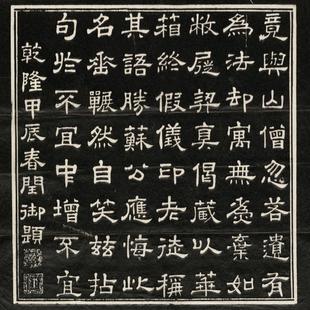 竟與山僧忽若遺有
為法却寓無為棄如
敝屣契真偈藏以華
箱終假儀印老徒稱
其語勝蘇公應悔此
名垂囅然自笑茲拈
句於不宜中增不宜
乾隆甲辰春閏御題